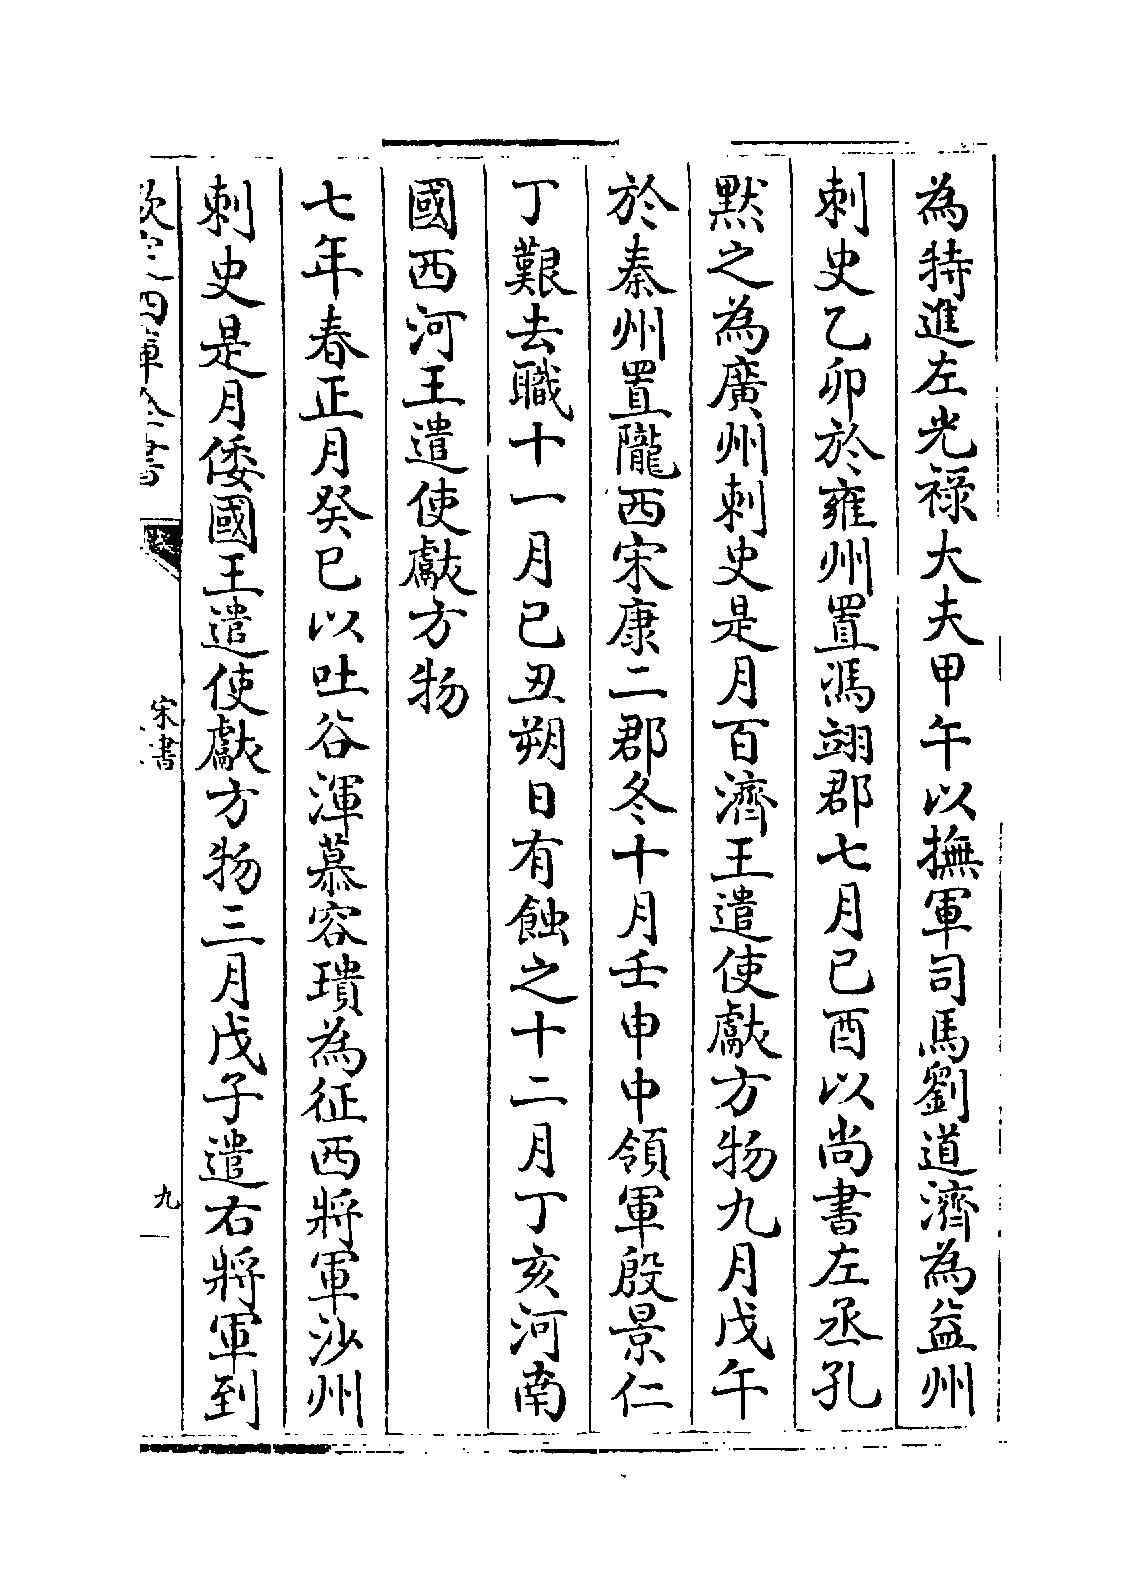 為特進左光祿大夫甲午以撫軍司馬劉道濟為益州
刺史乙卯於雍州置馮翊郡七月已酉以尚書左丞孔
默之為廣州刺史是月百濟王遣使獻方物九月戊午
於秦州置隴西宋康二郡冬十月壬申中領軍殷景仁
丁艱去職十一月已丑朔日有蝕之十二月丁亥河南
國西河王遣使獻方物
七年春正月癸巳以吐谷渾慕容璝為征西將軍沙州
刺史是月倭國王遣使獻方物三月戊子遣右將軍到
欽定四庫全書
宋書
九